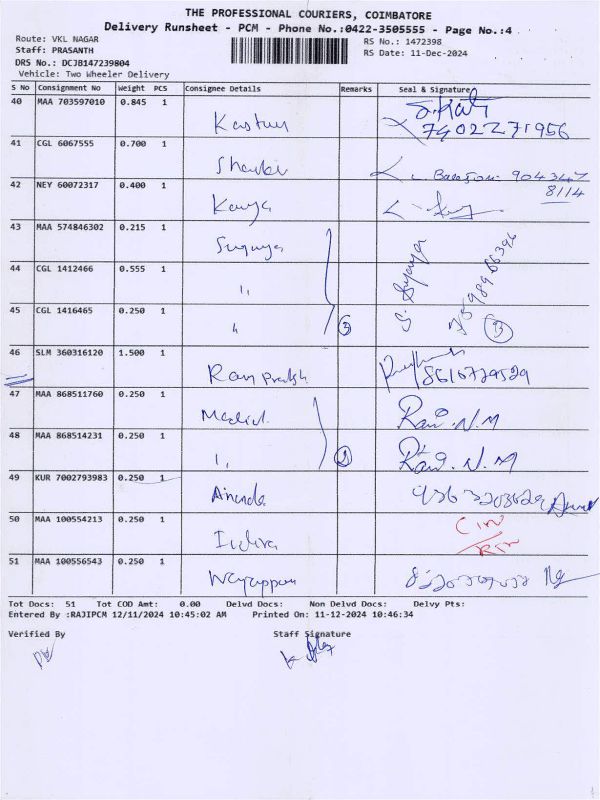 THE PROFESSIONAL COURIERS, COIMBATORE
Delivery Runsheet - PCM - Phone No.:0422-3505555 - Page No.:4
Route: VKL NAGAR
Staff: PRASANTH
RS No.: 1472398
RS Date: 11-Dec-2024
DRS No.: DCJB147239804
Vehicle: Two Wheeler Delivery
S No Consignment No Weight PCS Consignee Details Remarks Seal & Signature
40 MAA 703597010 0.845 1
7402271956
41 CGL 6067555 0.700 1
42 NEY 60072317 0.400 1 Kavya
8114
43 MAA 574846302 0.215 1
44 CGL 1412466 0.555 1 "
45 CGL 1416465 0.250 1 " 3 3
46 SLM 360316120 1.500 1
47 MAA 868511760 0.250 1 Ravi.N.M
48 MAA 868514231 0.250 1 " 2 Ravi.N.M
49 KUR 7002793983 0.250 1 Ananda
50 MAA 100554213 0.250 1
51 MAA 100556543 0.250 1
Tot Docs: 51 Tot COD Amt: 0.00 Delvd Docs: Non Delvd Docs: Delvy Pts:
Entered By :RAJIPCM 12/11/2024 10:45:02 AM Printed On: 11-12-2024 10:46:34
Verified By Staff Signature